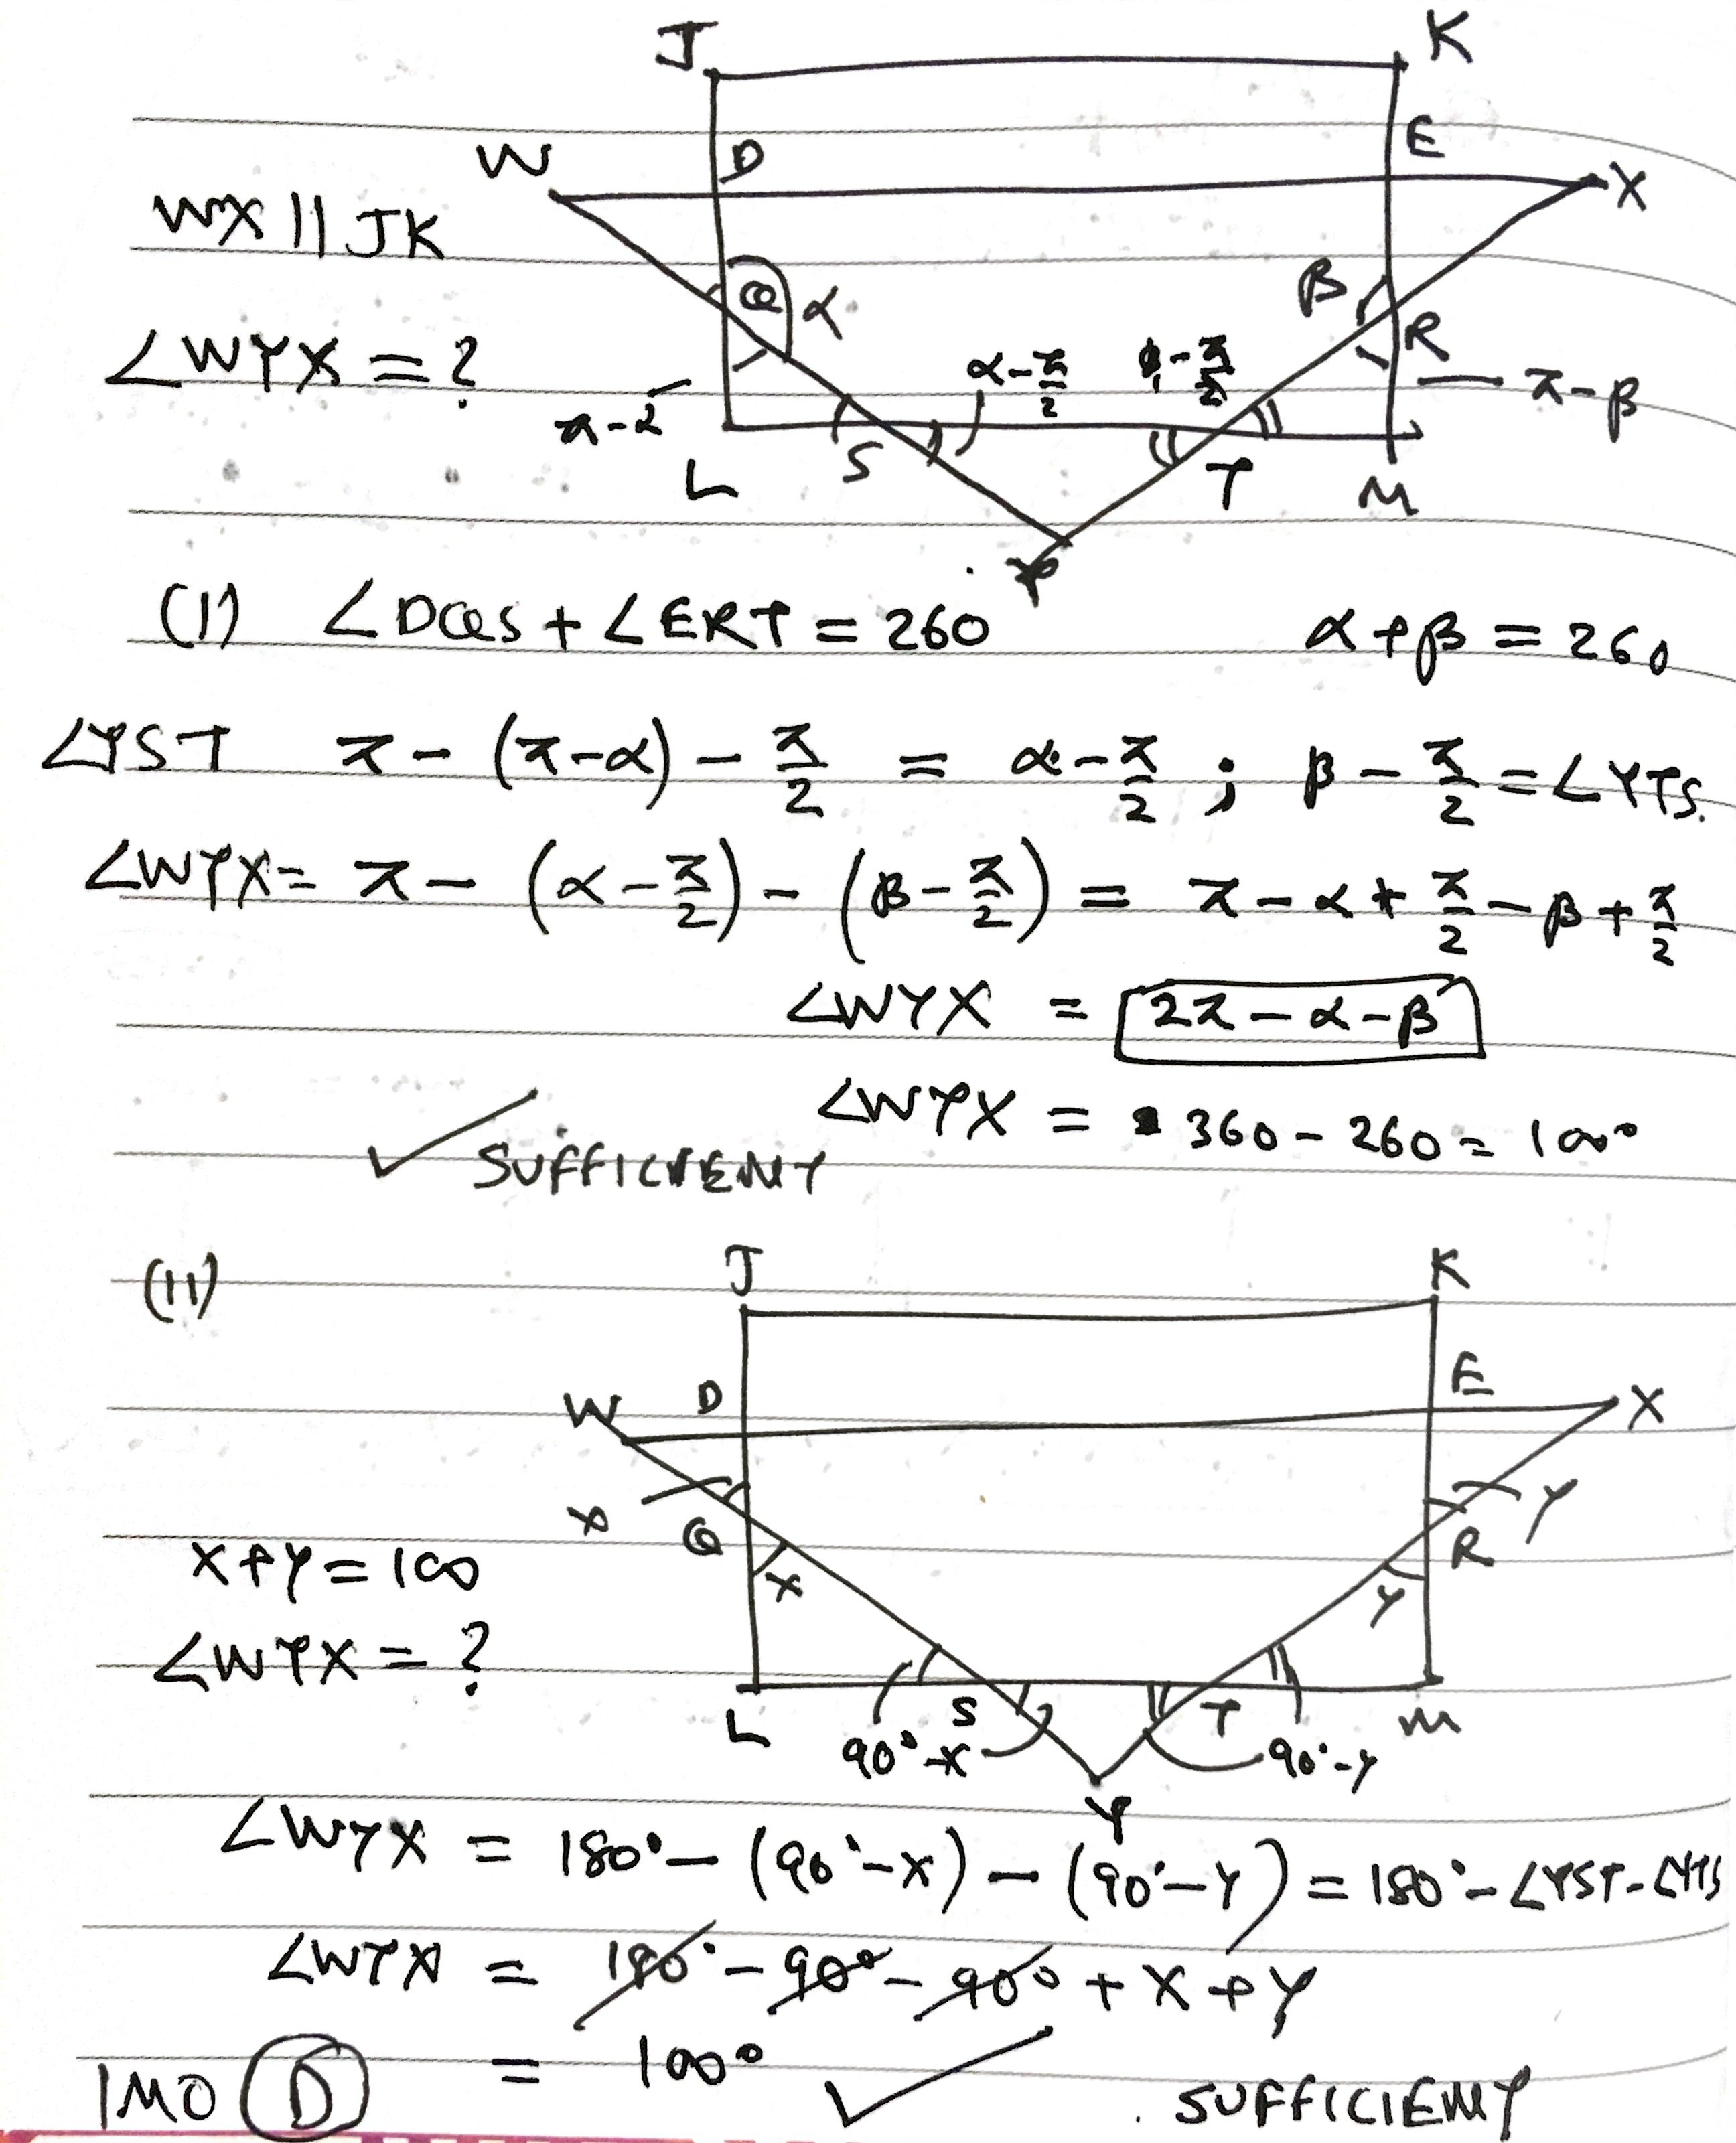 J K
W D E X
WX || JK
Q α β R
∠WYX = ?
π-α α-π/2 β-π/2 π-β
L S T M
Y
(I) ∠DQS + ∠ERT = 260 α+β = 260
∠YST π - (π-α) - π/2 = α - π/2 ; β - π/2 = ∠YTS.
∠WYX = π - (α - π/2) - (β - π/2) = π - α + π/2 - β + π/2
∠WYX = 2π - α - β
∠WYX = 360 - 260 = 100°
✓ SUFFICIENT
(II) J K
W D E X
x Q R Y
X+Y = 100 x Y
∠WYX = ?
L S T M
90°-x 90°-y
Y
∠WYX = 180° - (90°-x) - (90°-Y) = 180° - ∠YST - ∠YTS
∠WYX = 180° - 90° - 90° + X + Y
= 100° ✓
IMO D SUFFICIENT